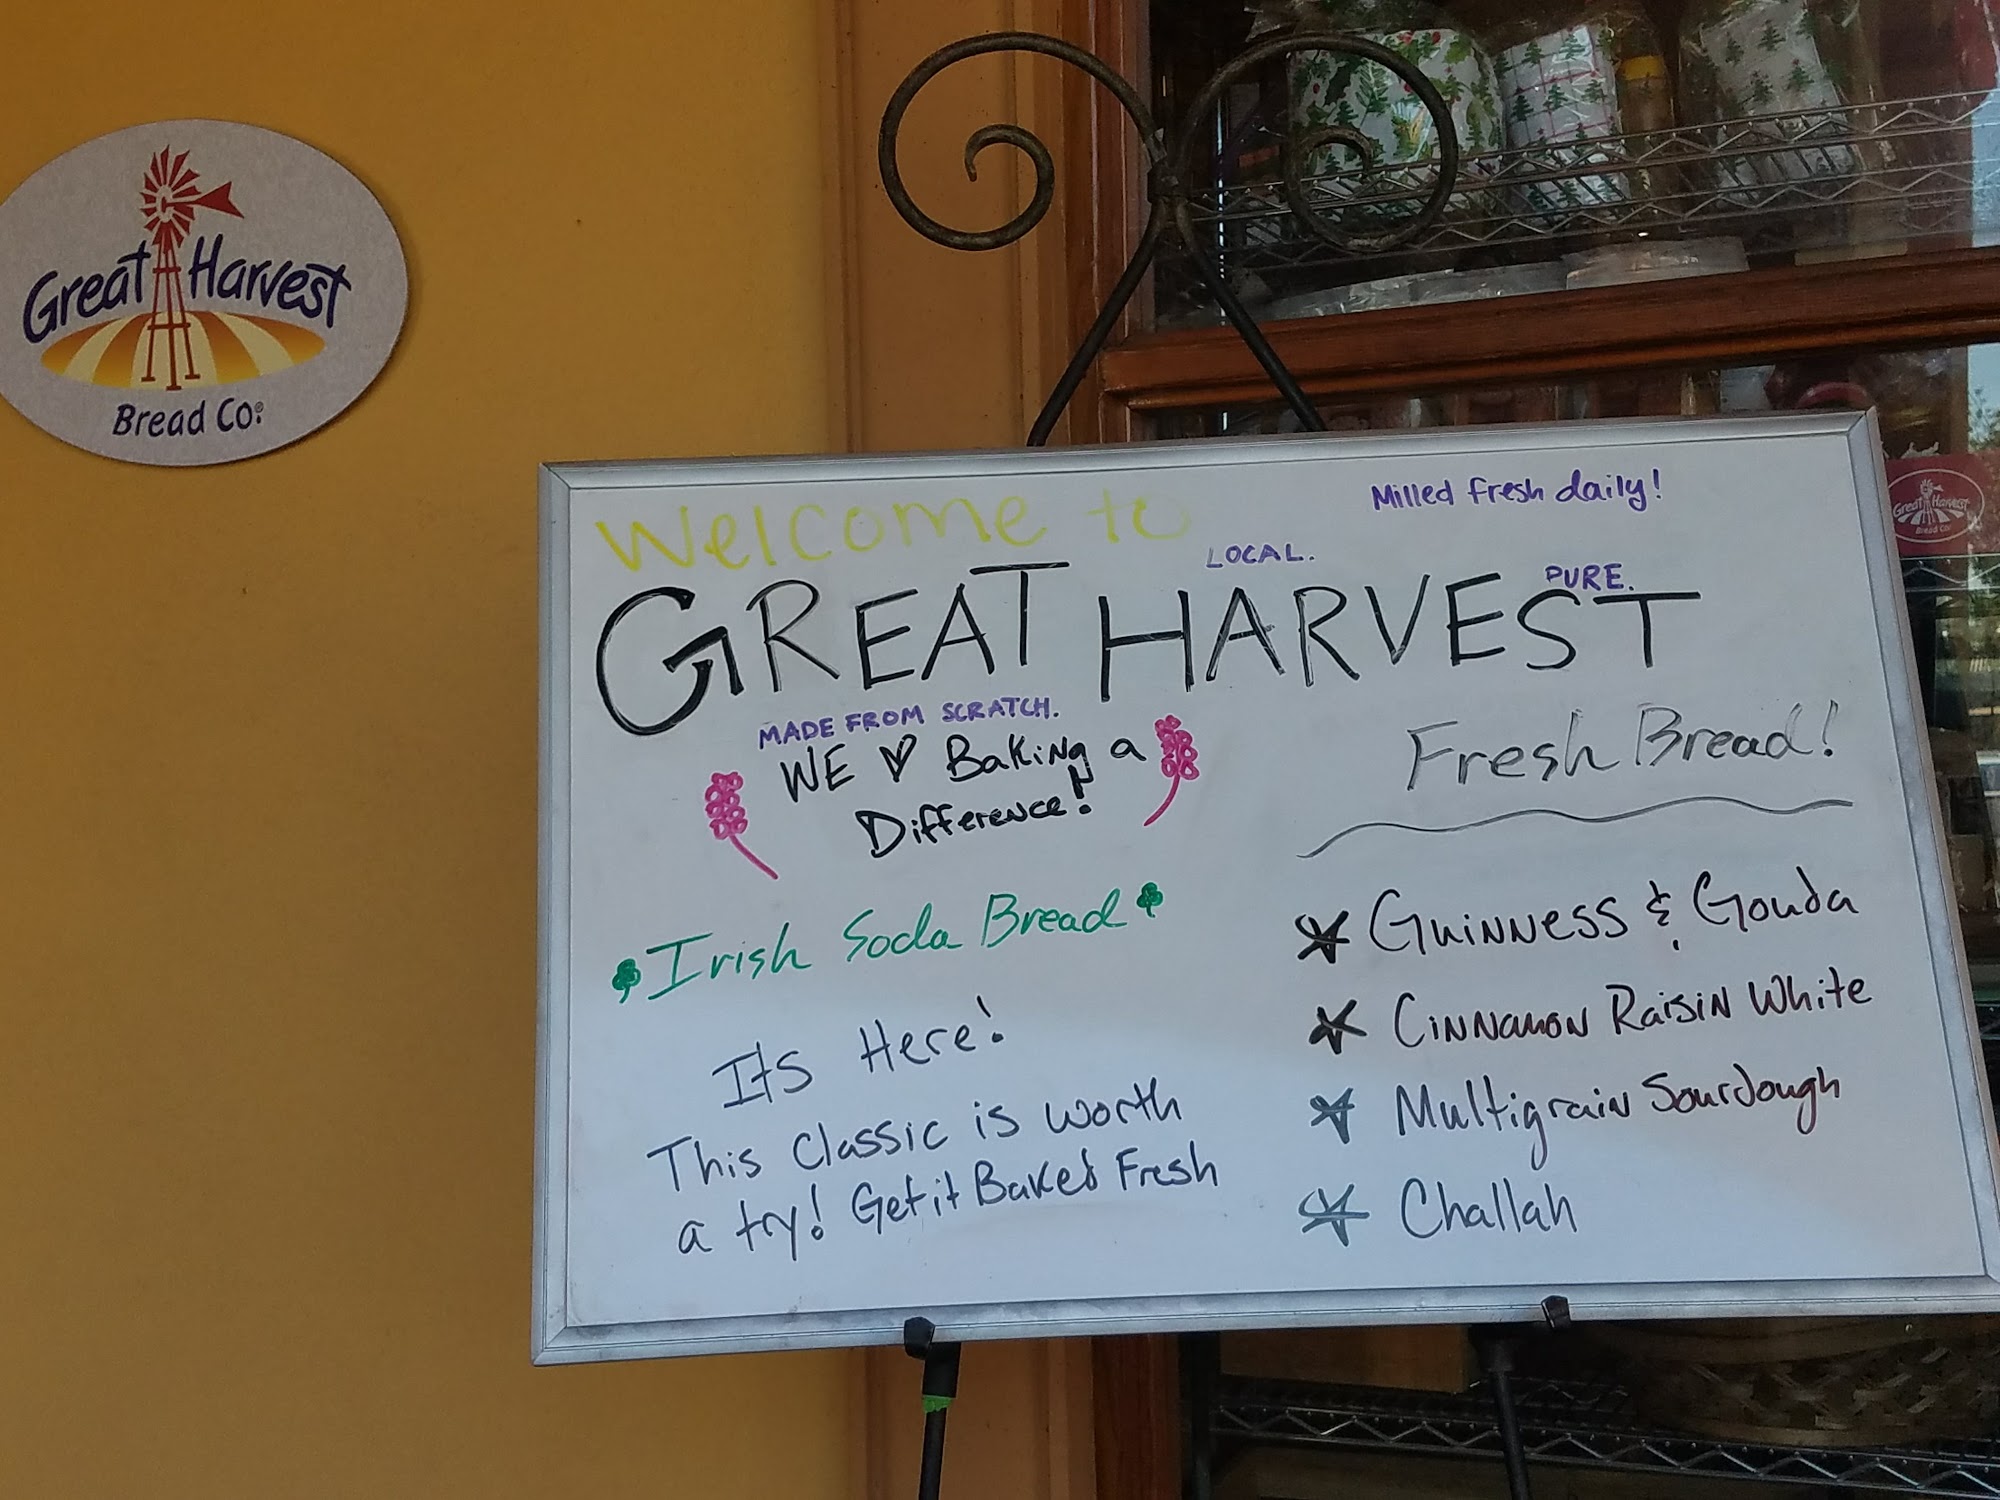 Great Harvest
Bread Co.®
Welcome to
Milled fresh daily!
LOCAL.
PURE.
GREAT HARVEST
MADE FROM SCRATCH.
WE ♥ Baking a
Difference!
Irish Soda Bread
Its Here!
This Classic is worth
a try! Get it Baked Fresh
Fresh Bread!
Guinness & Gouda
Cinnamon Raisin White
Multigrain Sourdough
Challah
Great Harvest
Bread Co.